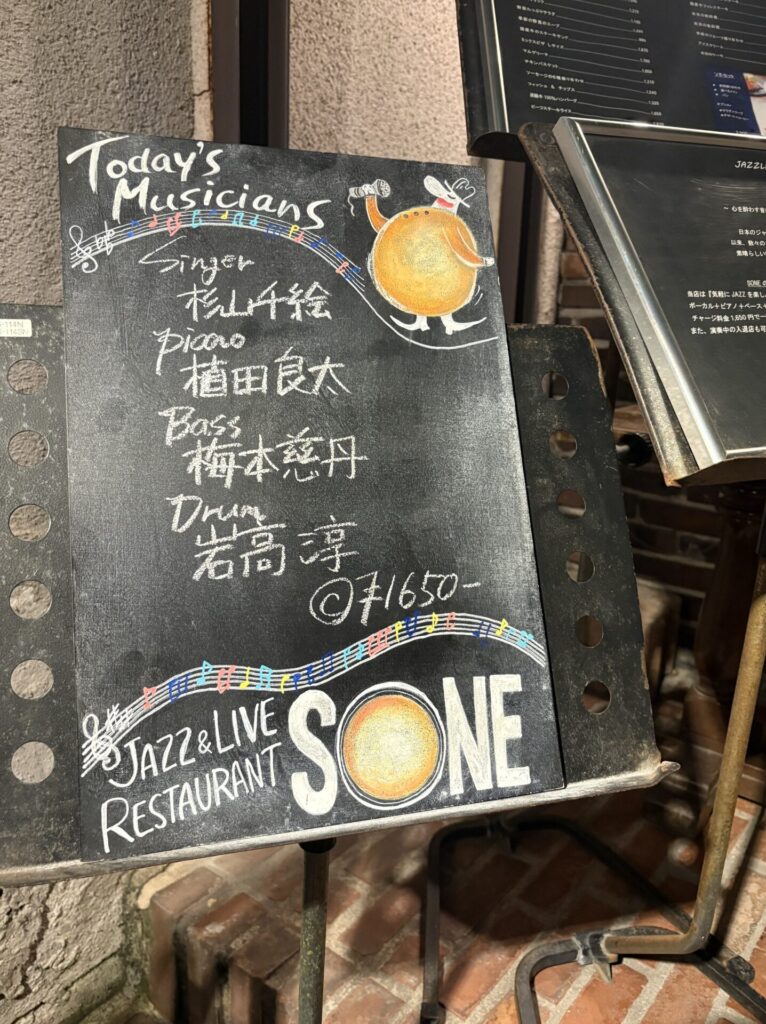 Today's
Musicians
Singer
杉山千絵
piano
植田良太
Bass
梅本慈丹
Drum
岩高 淳
©¥1650-
JAZZ&LIVE
RESTAURANT
SONE
チキンバスケット
フィッシュ & チップス
JAZZLI
～ 心を酔わす音
日本のジャ
以来、数々の
素晴らしい
SONE の
当店は『気軽に JAZZ を楽し
ボーカル+ピアノ+ベース+
チャージ料金 1,650 円で一
また、演奏中の入退店も可